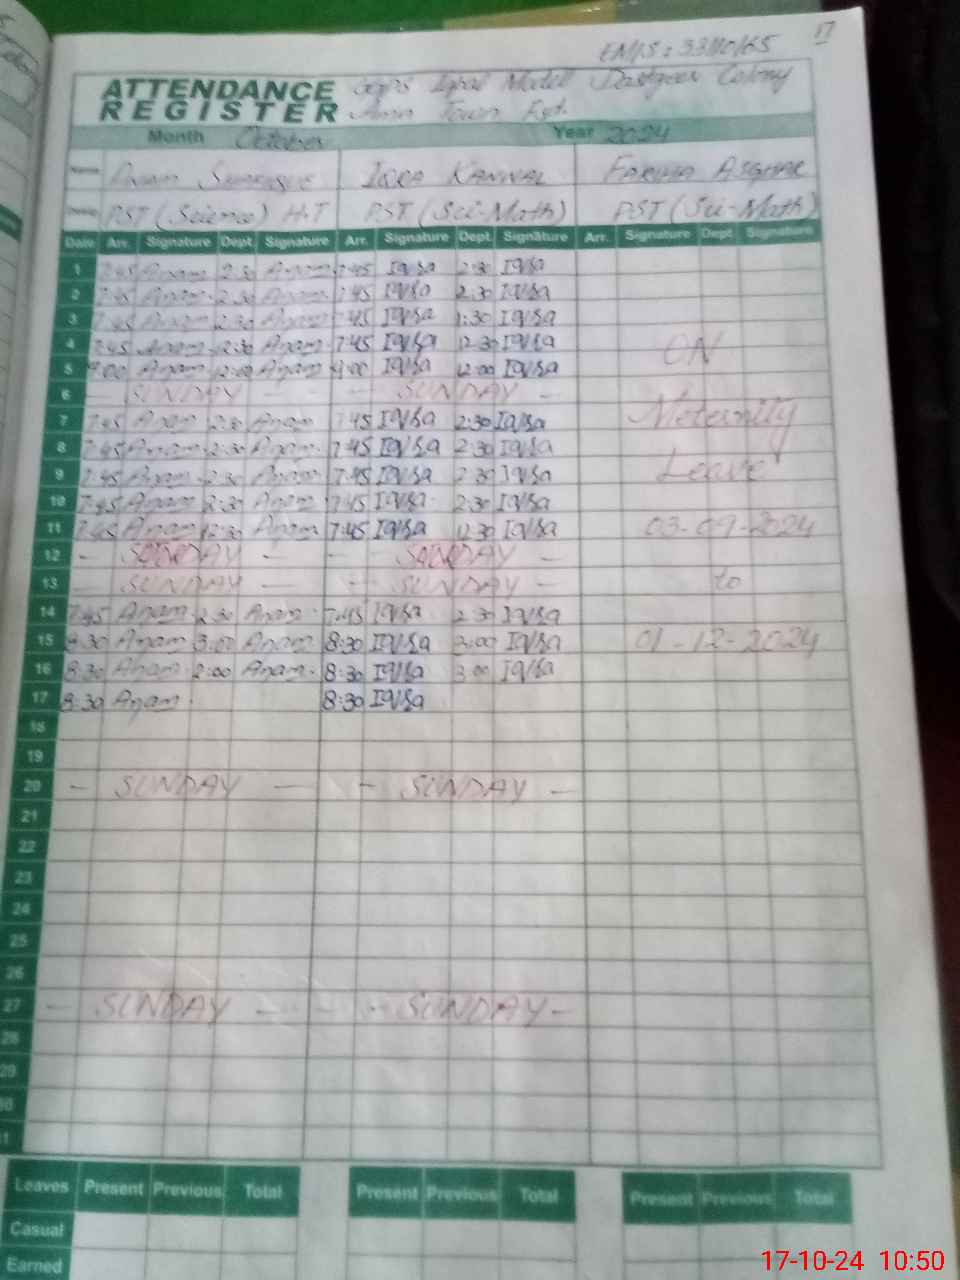 17
EMIS: 33110165
ATTENDANCE REGISTER
GGPS Iqbal Model Dastgeer Colony
Amin Town Fsd.
Month October Year 2024
Name Anam IQRA KANWAL FARIHA ASGHAR
PST (Science) H.T PST (Sci-Math) PST (Sci-Math)
Date Arr. Signature Dept. Signature Arr. Signature Dept. Signature Arr. Signature Dept. Signature
1 7:45 Anam 2:30 Anam 7:45 Iqra 2:30 Iqra
2 7:45 Anam 2:30 Anam 7:45 Iqra 2:30 Iqra
3 7:45 Anam 2:30 Anam 7:45 Iqra 1:30 Iqra
4 7:45 Anam 12:30 Anam 7:45 Iqra 12:30 Iqra ON
5 9:00 Anam 12:00 Anam 9:00 Iqra 12:00 Iqra
6 - SUNDAY - - SUNDAY -
7 7:45 Anam 2:30 Anam 7:45 Iqra 2:30 Iqra Meternity
8 7:45 Anam 2:30 Anam 7:45 Iqra 2:30 Iqra
9 7:45 Anam 2:30 Anam 7:45 Iqra 2:30 Iqra Leave
10 7:45 Anam 2:30 Anam 7:45 Iqra 2:30 Iqra
11 7:45 Anam 12:30 Anam 7:45 Iqra 12:30 Iqra 03-09-2024
12
13 - SUNDAY - - - SUNDAY - to
14 7:45 Anam 2:30 Anam 7:45 Iqra 2:30 Iqra
15 8:30 Anam 3:00 Anam 8:30 Iqra 3:00 Iqra 01-12-2024
16 8:30 Anam Anam 8:30 Iqra 3:00 Iqra
17 8:30 Anam 8:30 Iqra
18
19
20 - SUNDAY - - SUNDAY -
21
22
23
24
25
26
27 - SUNDAY - - - - SUNDAY -
28
29
30
31
Leaves Present Previous Total Present Previous Total Present Previous Total
Casual
Earned
17-10-24 10:50